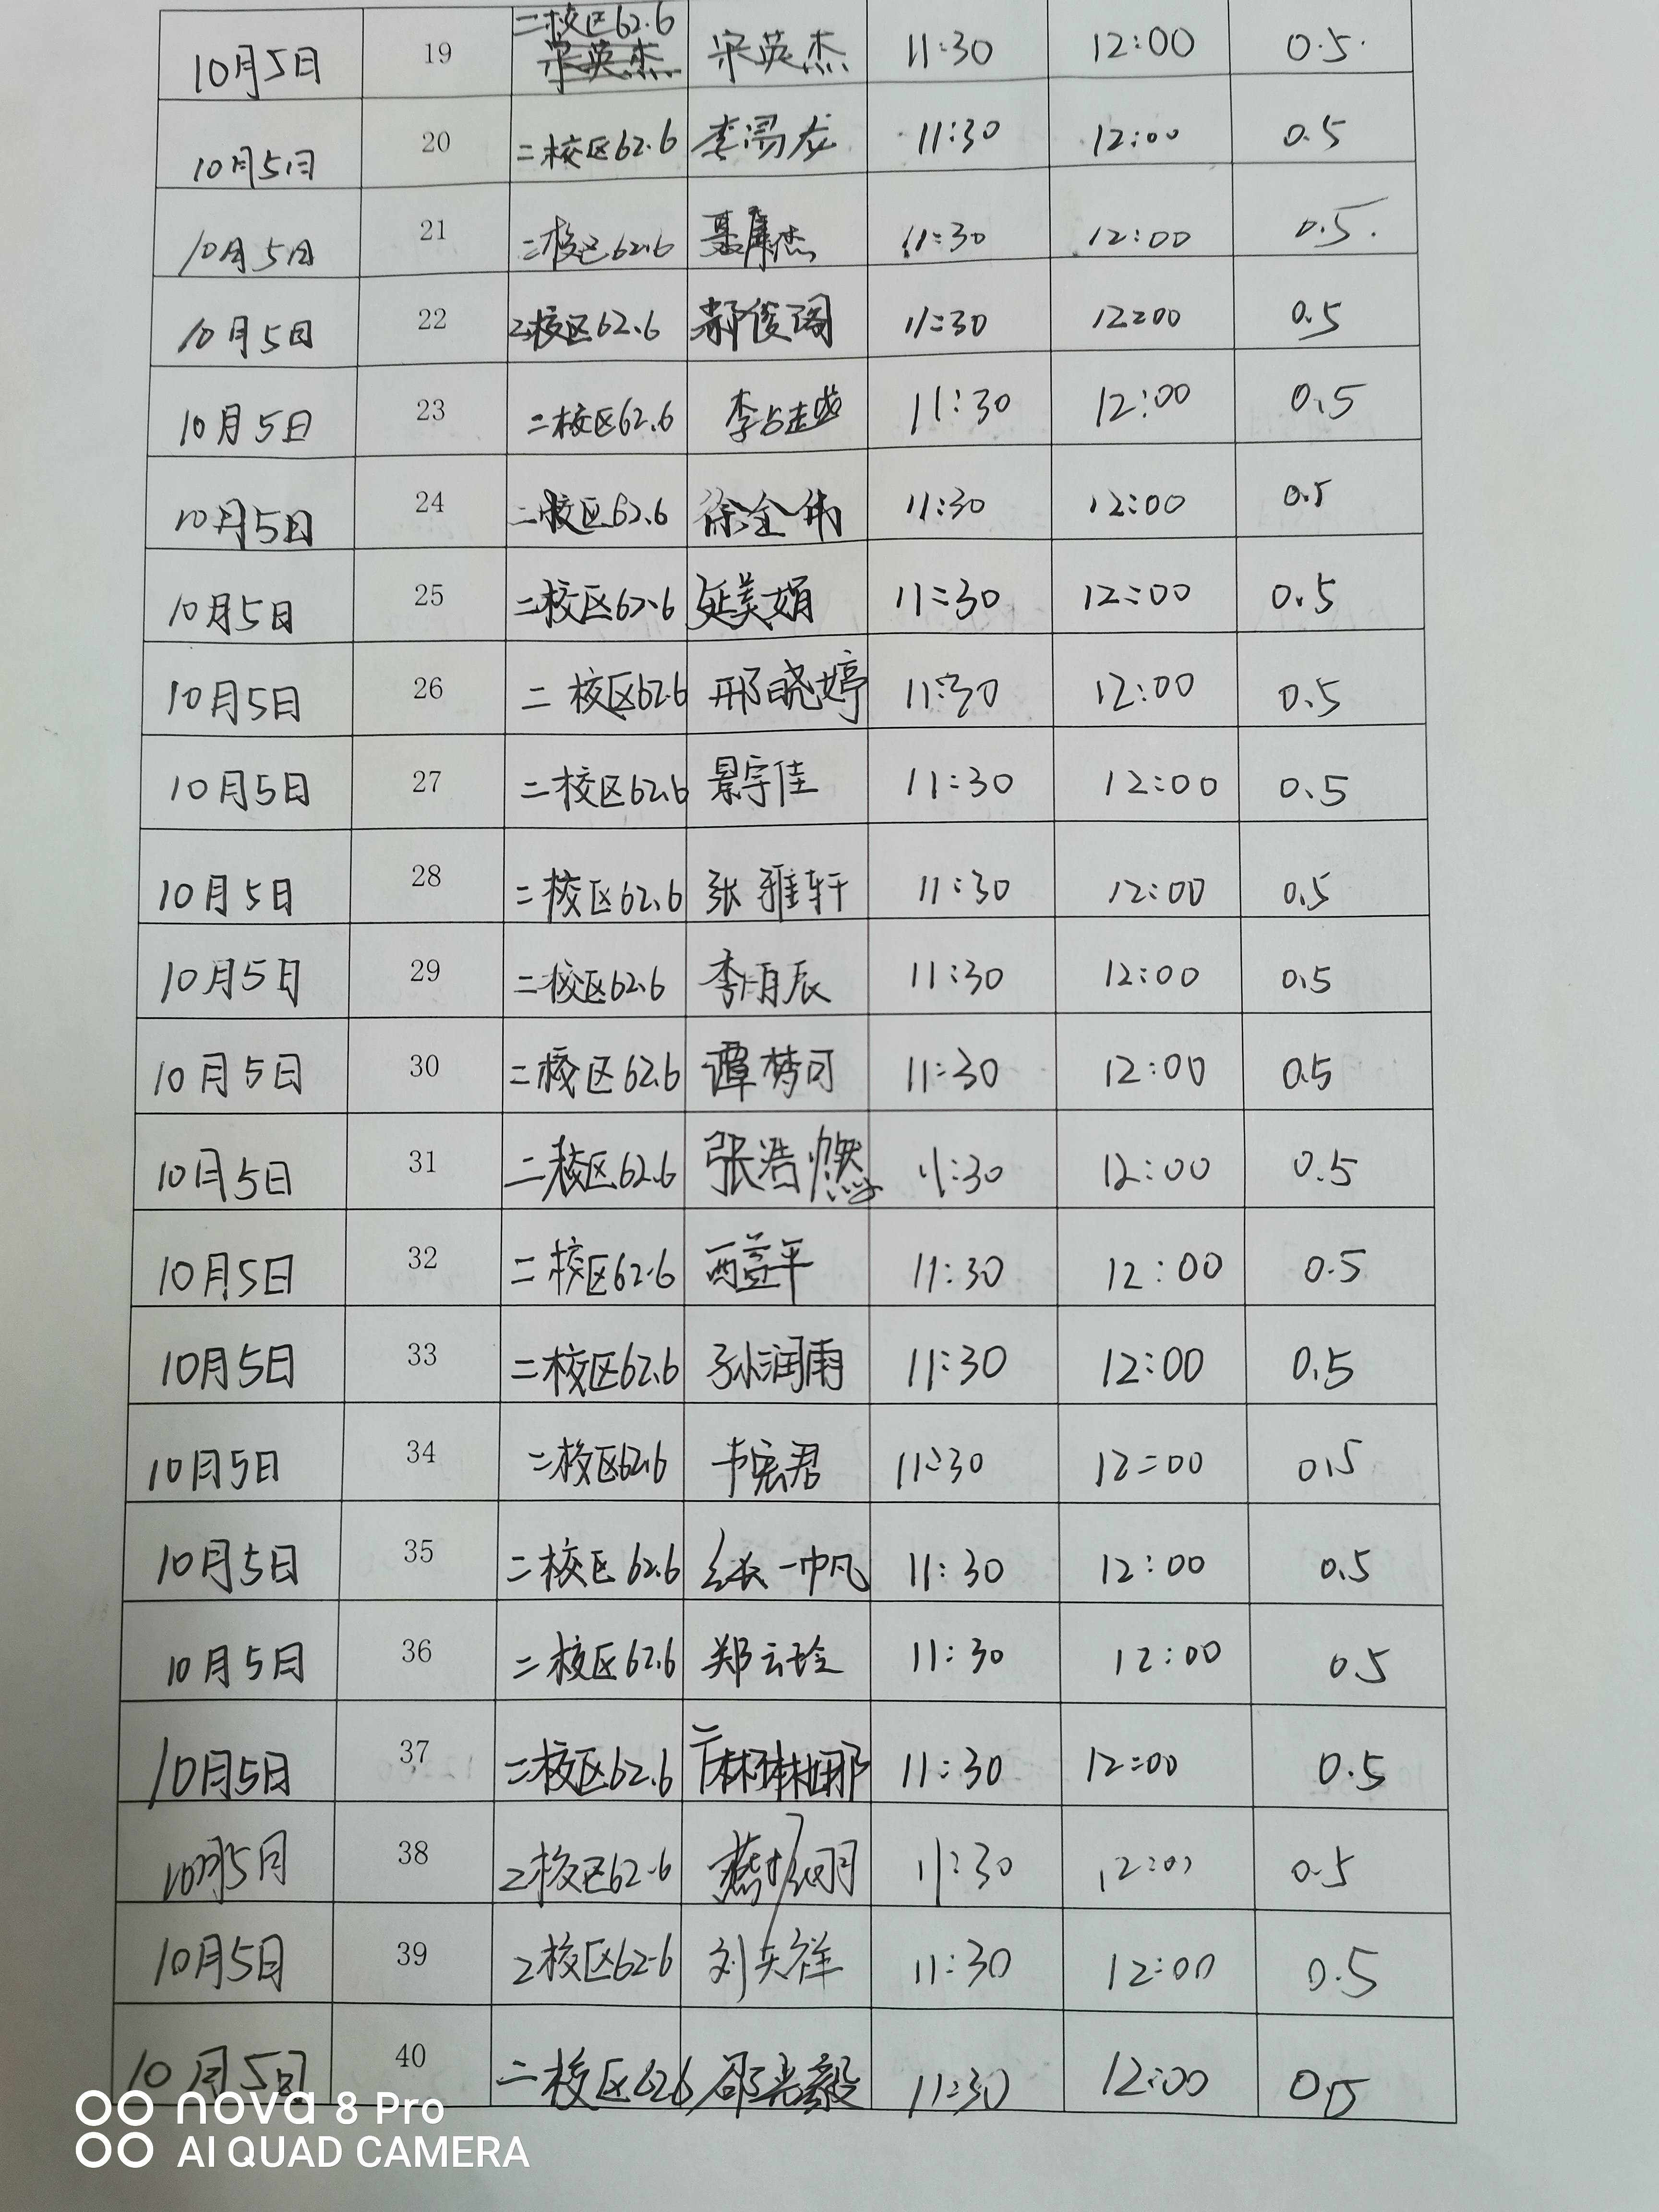 10月5日 19 二校区62.6 宋英杰 11:30 12:00 0.5
10月5日 20 二校区62.6 李 龙 11:30 12:00 0.5
10月5日 21 二校区62.6 11:30 12:00 0.5
10月5日 22 二校区62.6 郝俊阁 11:30 12:00 0.5
10月5日 23 二校区62.6 李占越 11:30 12:00 0.5
10月5日 24 二校区62.6 徐全伟 11:30 12:00 0.5
10月5日 25 二校区62.6 延美娟 11:30 12:00 0.5
10月5日 26 二校区62.6 邢晓婷 11:30 12:00 0.5
10月5日 27 二校区62.6 景宇佳 11:30 12:00 0.5
10月5日 28 二校区62.6 张雅轩 11:30 12:00 0.5
10月5日 29 二校区62.6 李雨辰 11:30 12:00 0.5
10月5日 30 二校区62.6 谭梦可 11:30 12:00 0.5
10月5日 31 二校区62.6 张浩燃 11:30 12:00 0.5
10月5日 32 二校区62.6 11:30 12:00 0.5
10月5日 33 二校区62.6 孙润雨 11:30 12:00 0.5
10月5日 34 二校区62.6 韦宏君 11:30 12:00 0.5
10月5日 35 二校区62.6 张一帆 11:30 12:00 0.5
10月5日 36 二校区62.6 郑云玲 11:30 12:00 0.5
10月5日 37 二校区62.6 麻琳娜 11:30 12:00 0.5
10月5日 38 二校区62.6 11:30 12:00 0.5
10月5日 39 二校区62.6 刘天祥 11:30 12:00 0.5
10月5日 40 二校区62.6 邵光毅 11:30 12:00 0.5
nova 8 Pro
AI QUAD CAMERA